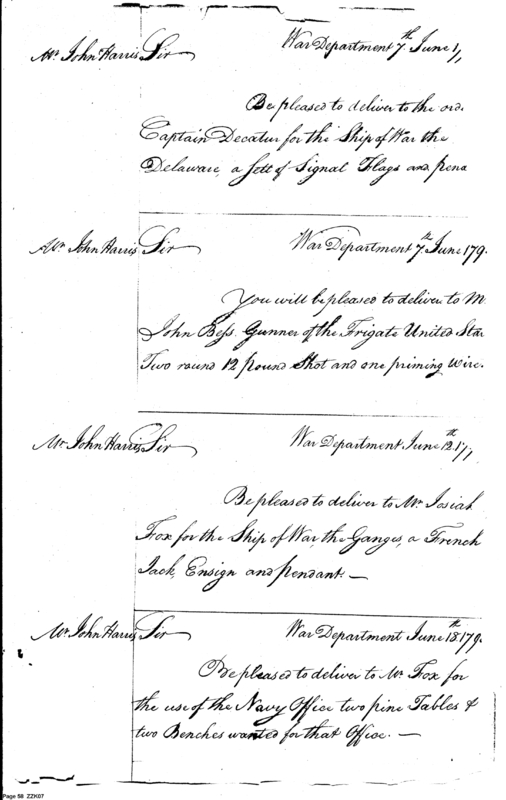 Mr. John Harris Sir War Department 7th June 1
Be pleased to deliver to the ord.
Captain Decatur for the Ship of War the
Delaware, a sett of Signal Flags and pena
Mr. John Harris Sir War Department 7th June 179.
You will be pleased to deliver to M
John Bess. Gunner of the Frigate United Sta
Two round 12 pound Shot and one priming wire.
Mr. John Harris Sir War Department June 12th 17
Be pleased to deliver to Mr. Josiah
Fox for the Ship of War, the Ganges, a French
Jack, Ensign and pendant. —
Mr. John Harris Sir War Department June 18th 179.
Be pleased to deliver to Mr. Fox for
the use of the Navy Office two pine Tables &
two Benches wanted for that Office. —
Page 58 ZZK07